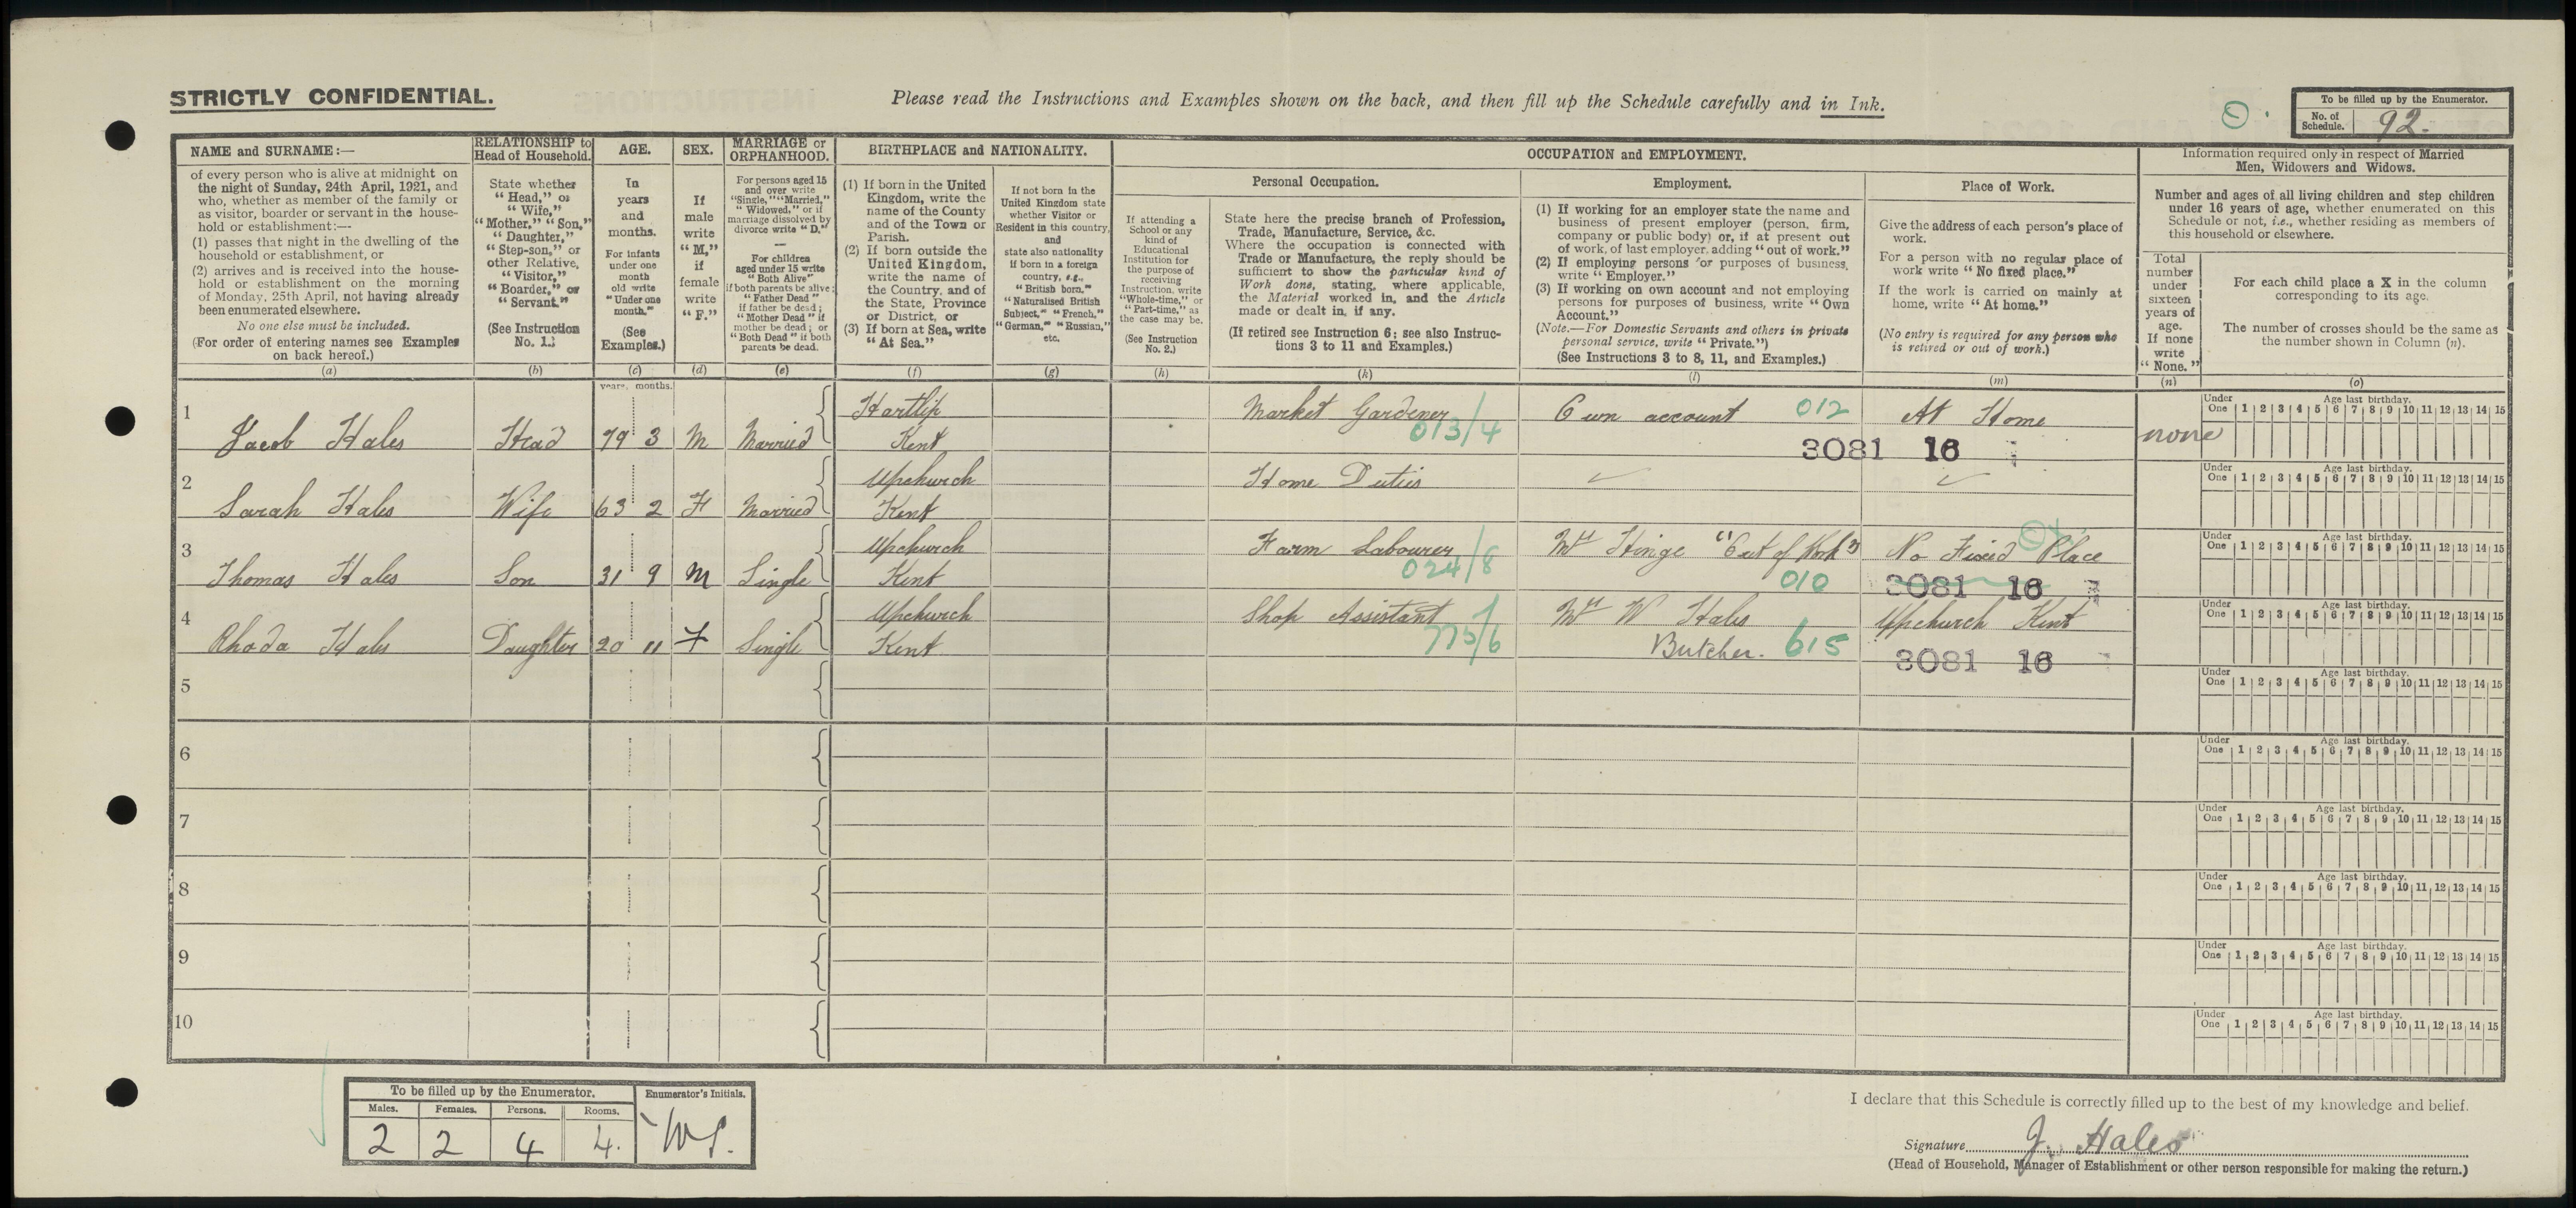 STRICTLY CONFIDENTIAL.
Please read the Instructions and Examples shown on the back, and then fill up the Schedule carefully and in Ink.
To be filled up by the Enumerator.
No. of Schedule. 92.
NAME and SURNAME:—
of every person who is alive at midnight on
the night of Sunday, 24th April, 1921, and
who, whether as member of the family or
as visitor, boarder or servant in the house-
hold or establishment:—
(1) passes that night in the dwelling of the
household or establishment, or
(2) arrives and is received into the house-
hold or establishment on the morning
of Monday, 25th April, not having already
been enumerated elsewhere.
No one else must be included.
(For order of entering names see Examples
on back hereof.)
(a)
RELATIONSHIP to
Head of Household.
State whether
"Head," or
"Wife,"
"Mother," "Son,"
"Daughter,"
"Step-son," or
other Relative,
"Visitor,"
"Boarder," or
"Servant."
(See Instruction
No. 1.)
(b)
AGE.
In
years
and
months.
For infants
under one
month
old write
"Under one
month."
(See
Examples.)
(c)
years. months.
SEX.
If
male
write
"M,"
if
female
write
"F."
(d)
MARRIAGE or
ORPHANHOOD.
For persons aged 15
and over write
"Single," "Married,"
"Widowed," or if
marriage dissolved by
divorce write "D."
—
For children
aged under 15 write
"Both Alive"
if both parents be alive;
"Father Dead"
if father be dead;
"Mother Dead" if
mother be dead; or
"Both Dead" if both
parents be dead.
(e)
BIRTHPLACE and NATIONALITY.
(1) If born in the United
Kingdom, write the
name of the County
and of the Town or
Parish.
(2) If born outside the
United Kingdom,
write the name of
the Country, and of
the State, Province
or District, or
(3) If born at Sea, write
"At Sea."
(f)
If not born in the
United Kingdom state
whether Visitor or
Resident in this country,
and
state also nationality
if born in a foreign
country, e.g.,
"British born,"
"Naturalised British
Subject," "French,"
"German," "Russian,"
etc.
(g)
OCCUPATION and EMPLOYMENT.
If attending a
School or any
kind of
Educational
Institution for
the purpose of
receiving
Instruction, write
"Whole-time," or
"Part-time," as
the case may be.
(See Instruction
No. 2.)
(h)
Personal Occupation.
State here the precise branch of Profession,
Trade, Manufacture, Service, &c.
Where the occupation is connected with
Trade or Manufacture, the reply should be
sufficient to show the particular kind of
Work done, stating, where applicable,
the Material worked in, and the Article
made or dealt in, if any.
(If retired see Instruction 6; see also Instruc-
tions 3 to 11 and Examples.)
(k)
Employment.
(1) If working for an employer state the name and
business of present employer (person, firm,
company or public body) or, if at present out
of work, of last employer, adding "out of work."
(2) If employing persons for purposes of business,
write "Employer."
(3) If working on own account and not employing
persons for purposes of business, write "Own
Account."
(Note.—For Domestic Servants and others in private
personal service, write "Private.")
(See Instructions 3 to 8, 11, and Examples.)
(l)
Place of Work.
Give the address of each person's place of
work.
For a person with no regular place of
work write "No fixed place."
If the work is carried on mainly at
home, write "At home."
(No entry is required for any person who
is retired or out of work.)
(m)
Information required only in respect of Married
Men, Widowers and Widows.
Number and ages of all living children and step children
under 16 years of age, whether enumerated on this
Schedule or not, i.e., whether residing as members of
this household or elsewhere.
Total
number
under
sixteen
years of
age.
If none
write
"None."
(n)
For each child place a X in the column
corresponding to its age.
The number of crosses should be the same as
the number shown in Column (n).
(o)
1 Jacob Hales Head 79 3 M Married Hartlip Kent Market Gardener 013/4 Own account 012 At Home none
3081 16
Under One Age last birthday. 1 2 3 4 5 6 7 8 9 10 11 12 13 14 15
2 Sarah Hales Wife 63 2 F Married Upchurch Kent Home Duties
Under One Age last birthday. 1 2 3 4 5 6 7 8 9 10 11 12 13 14 15
3 Thomas Hales Son 31 9 M Single Upchurch Kent Farm Labourer 024/8 Mr Hinge "Out of Work" 010 No Fixed Place
3081 16
Under One Age last birthday. 1 2 3 4 5 6 7 8 9 10 11 12 13 14 15
4 Rhoda Hales Daughter 20 11 F Single Upchurch Kent Shop Assistant 775/6 Mr W Hales Butcher. 615 Upchurch Kent
3081 16
Under One Age last birthday. 1 2 3 4 5 6 7 8 9 10 11 12 13 14 15
5
Under One Age last birthday. 1 2 3 4 5 6 7 8 9 10 11 12 13 14 15
6
Under One Age last birthday. 1 2 3 4 5 6 7 8 9 10 11 12 13 14 15
7
Under One Age last birthday. 1 2 3 4 5 6 7 8 9 10 11 12 13 14 15
8
Under One Age last birthday. 1 2 3 4 5 6 7 8 9 10 11 12 13 14 15
9
Under One Age last birthday. 1 2 3 4 5 6 7 8 9 10 11 12 13 14 15
10
Under One Age last birthday. 1 2 3 4 5 6 7 8 9 10 11 12 13 14 15
To be filled up by the Enumerator.
Enumerator's Initials.
Males. Females. Persons. Rooms.
2 2 4 4.
I declare that this Schedule is correctly filled up to the best of my knowledge and belief.
Signature J. Hales
(Head of Household, Manager of Establishment or other person responsible for making the return.)